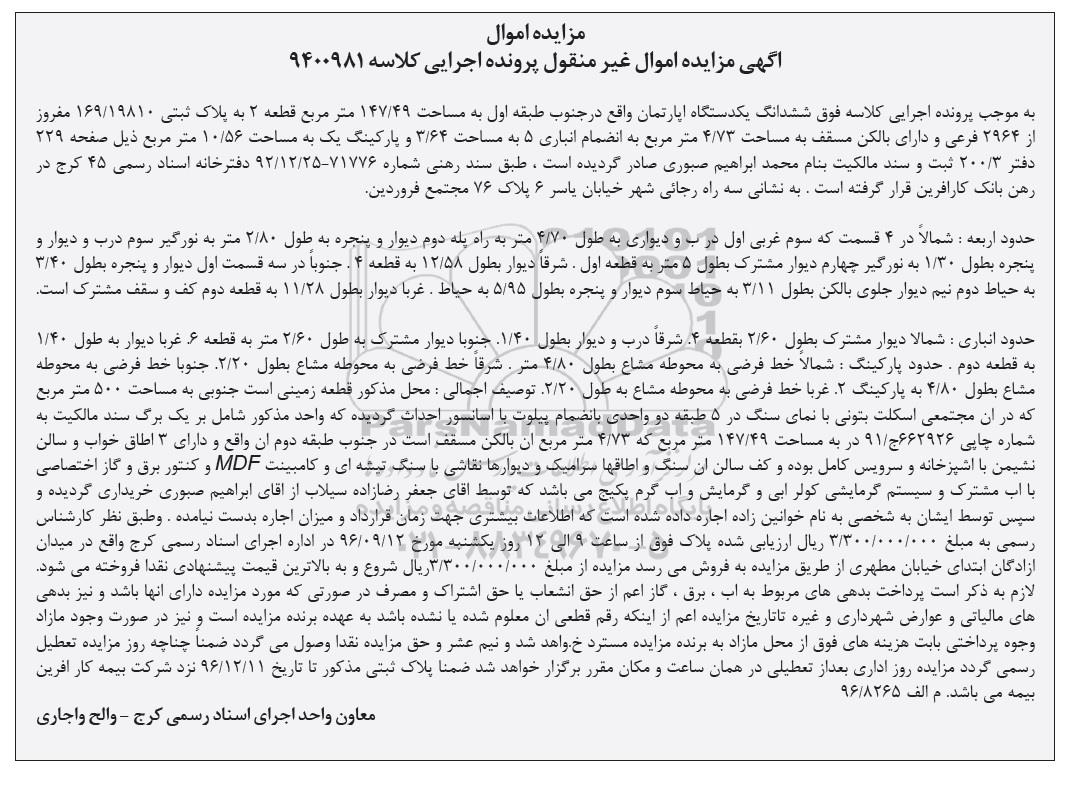 مزایده اموال
اگهی مزایده اموال غیر منقول پرونده اجرایی کلاسه ۹۴۰۰۹۸۱
به موجب پرونده اجرایی کلاسه فوق ششدانگ یکدستگاه اپارتمان واقع درجنوب طبقه اول به مساحت ۱۴۷/۴۹ متر مربع قطعه ۲ به پلاک ثبتی ۱۶۹/۱۹۸۱۰ مفروز
از ۲۹۶۴ فرعی و دارای بالکن مسقف به مساحت ۴/۷۳ متر مربع به انضمام انباری ۵ به مساحت ۳/۶۴ و پارکینگ یک به مساحت ۱۰/۵۶ متر مربع ذیل صفحه ۲۲۹
دفتر ۲۰۰/۳ ثبت و سند مالکیت بنام محمد ابراهیم صبوری صادر گردیده است ، طبق سند رهنی شماره ۷۱۷۷۶-۹۲/۱۲/۲۵ دفترخانه اسناد رسمی ۴۵ کرج در
رهن بانک کارافرین قرار گرفته است . به نشانی سه راه رجائی شهر خیابان یاسر ۶ پلاک ۷۶ مجتمع فروردین.
حدود اربعه : شمالاً در ۴ قسمت که سوم غربی اول در ب و دیواری به طول ۴/۷۰ متر به راه پله دوم دیوار و پنجره به طول ۲/۸۰ متر به نورگیر سوم درب و دیوار و
پنجره بطول ۱/۳۰ به نورگیر چهارم دیوار مشترک بطول ۵ متر به قطعه اول . شرقاً دیوار بطول ۱۲/۵۸ به قطعه ۴ . جنوباً در سه قسمت اول دیوار و پنجره بطول ۳/۴۰
به حیاط دوم نیم دیوار جلوی بالکن بطول ۳/۱۱ به حیاط سوم دیوار و پنجره بطول ۵/۹۵ به حیاط . غربا دیوار بطول ۱۱/۲۸ به قطعه دوم کف و سقف مشترک است.
حدود انباری : شمالا دیوار مشترک بطول ۲/۶۰ بقطعه ۴. شرقاً درب و دیوار بطول ۱/۴۰. جنوبا دیوار مشترک به طول ۲/۶۰ متر به قطعه ۶. غربا دیوار به طول ۱/۴۰
به قطعه دوم . حدود پارکینگ : شمالاً خط فرضی به محوطه مشاع بطول ۴/۸۰ متر . شرقاً خط فرضی به محوطه مشاع بطول ۲/۲۰. جنوبا خط فرضی به محوطه
مشاع بطول ۴/۸۰ به پارکینگ ۲. غربا خط فرضی به محوطه مشاع به طول ۲/۲۰. توصیف اجمالی : محل مذکور قطعه زمینی است جنوبی به مساحت ۵۰۰ متر مربع
که در ان مجتمعی اسکلت بتونی با نمای سنگ در ۵ طبقه دو واحدی بانضمام پیلوت با اسانسور احداث گردیده که واحد مذکور شامل بر یک برگ سند مالکیت به
شماره چاپی ۶۶۲۹۲۶ج/۹۱ در به مساحت ۱۴۷/۴۹ متر مربع که ۴/۷۳ متر مربع ان بالکن مسقف است در جنوب طبقه دوم ان واقع و دارای ۳ اطاق خواب و سالن
نشیمن با اشپزخانه و سرویس کامل بوده و کف سالن ان سنگ و اطاقها سرامیک و دیوارها نقاشی با سنگ تیشه ای و کامبینت MDF و کنتور برق و گاز اختصاصی
با اب مشترک و سیستم گرمایشی کولر ابی و گرمایش و اب گرم پکیج می باشد که توسط اقای جعفر رضازاده سیلاب از اقای ابراهیم صبوری خریداری گردیده و
سپس توسط ایشان به شخصی به نام خوانین زاده اجاره داده شده است که اطلاعات بیشتری جهت زمان قرارداد و میزان اجاره بدست نیامده . وطبق نظر کارشناس
رسمی به مبلغ ۳/۳۰۰/۰۰۰/۰۰۰ ریال ارزیابی شده پلاک فوق از ساعت ۹ الی ۱۲ روز یکشنبه مورخ ۹۶/۰۹/۱۲ در اداره اجرای اسناد رسمی کرج واقع در میدان
ازادگان ابتدای خیابان مطهری از طریق مزایده به فروش می رسد مزایده از مبلغ ۳/۳۰۰/۰۰۰/۰۰۰ریال شروع و به بالاترین قیمت پیشنهادی نقدا فروخته می شود.
لازم به ذکر است پرداخت بدهی های مربوط به اب ، برق ، گاز اعم از حق انشعاب یا حق اشتراک و مصرف در صورتی که مورد مزایده دارای انها باشد و نیز بدهی
های مالیاتی و عوارض شهرداری و غیره تاتاریخ مزایده اعم از اینکه رقم قطعی ان معلوم شده یا نشده باشد به عهده برنده مزایده است و نیز در صورت وجود مازاد
وجوه پرداختی بابت هزینه های فوق از محل مازاد به برنده مزایده مسترد خ.واهد شد و نیم عشر و حق مزایده نقدا وصول می گردد ضمناً چناچه روز مزایده تعطیل
رسمی گردد مزایده روز اداری بعداز تعطیلی در همان ساعت و مکان مقرر برگزار خواهد شد ضمنا پلاک ثبتی مذکور تا تاریخ ۹۶/۱۲/۱۱ نزد شرکت بیمه کار افرین
بیمه می باشد. م الف ۹۶/۸۲۶۵
معاون واحد اجرای اسناد رسمی کرج – والح واجاری
ParsNamadData
پایگاه اطلاع رسانی مناقصه و مزایده
۰۲۱-۸۸۳۴۹۶۷۰-۵